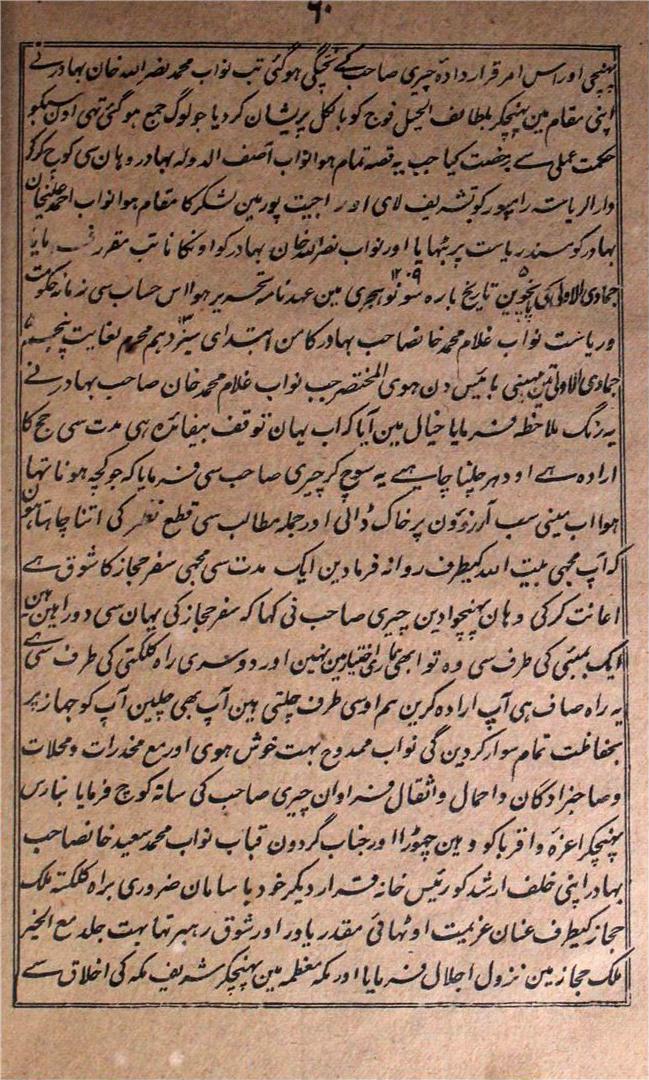 ۶۰
پہنچی اور اس امر قرار دادہ چیری صاحب کے پختگی ہو گئی تب نواب محمد نصر اللہ خان بہادر نے
اپنی مقام مین پہنچکر بلطائف الحیل فوج کو بالکل پریشان کر دیا جو لوگ جمع ہو گئی تہی اون سبکو
حکمت عملی سے رخصت کیا جب یہ قصہ تمام ہوا نواب آصف الدولہ بہادر وہان سی کوچ کر کر
دار الریاستہ رامپور کو تشریف لای اور اجیت پور مین لشکر کا مقام ہوا نواب احمد علیخان
بہادر کو مسند ریاست پر بٹہایا اور نواب نصر اللہ خان بہادر کو اونکا نائب مقرر فرمایا
جمادی الاولیٰ کی پنجوین ۵ تاریخ بارہ سو نو ۱۲۰۹ ہجری مین عہدنامہ تحریر ہوا اس حساب سی زمانہ حکومت
و ریاست نواب غلام محمد خانصاحب بہادر کا من ابتدای سیزدہم ۱۳ محرم لغایت پنجم ۵
جمادی الاولیٰ تین مہینی بائیس دن ہوی المختصر جب نواب غلام محمد خان صاحب بہادر نے
یہ رنگ ملاحظہ فرمایا خیال مین آیا کہ اب یہان توقف بیفائدہ ہی مدت سی حج کا
ارادہ ہے اودہر چلنا چاہیے یہ سوچ کر چیری صاحب سی فرمایا کہ جو کچہ ہونا تہا
ہوا اب مینی سب آرزوؤن پر خاک ڈالی اور جملہ مطالب سی قطع نظر کی اتنا چاہتا ہون
کہ آپ مجہی بیت اللہ کیطرف روانہ فرمادین ایک مدت سی مجہی سفر حجاز کا شوق ہے
اعانت کر کی وہان پہنچوادین چیری صاحب نی کہا کہ سفر حجاز کی یہان سی دو راہین ہین
ایک بمبئی کی طرف سی وہ تو ابھی ہماری اختیار مین نہین اور دوسری راہ کلکتی کی طرف سی ہے
یہ راہ صاف ہی آپ ارادہ کرین ہم اوسی طرف چلتی ہین آپ بھی چلین آپ کو جہاز پر
بحفاظت تمام سوار کر دین گی نواب ممدوح بہت خوش ہوی اور مع مخدرات و محلات
و صاحبزادگان و احمال و اثقال فراوان چیری صاحب کی ساتہ کوچ فرمایا بنارس
پہنچکر اعزہ و اقربا کو وہین چہوڑا اور جناب گردون قباب نواب محمد سعید خانصاحب
بہادر اپنی خلف ارشد کو رئیس خانہ قرار دیکر خود با سامان ضروری براہ کلکتہ ملک
حجاز کیطرف عنان عزیمت اوٹہائی مقدر یاور اور شوق رہبر تہا بہت جلد مع الخیر
ملک حجاز مین نزول اجلال فرمایا اور مکہ معظمہ مین پہنچکر شریف مکہ کی اخلاق سے